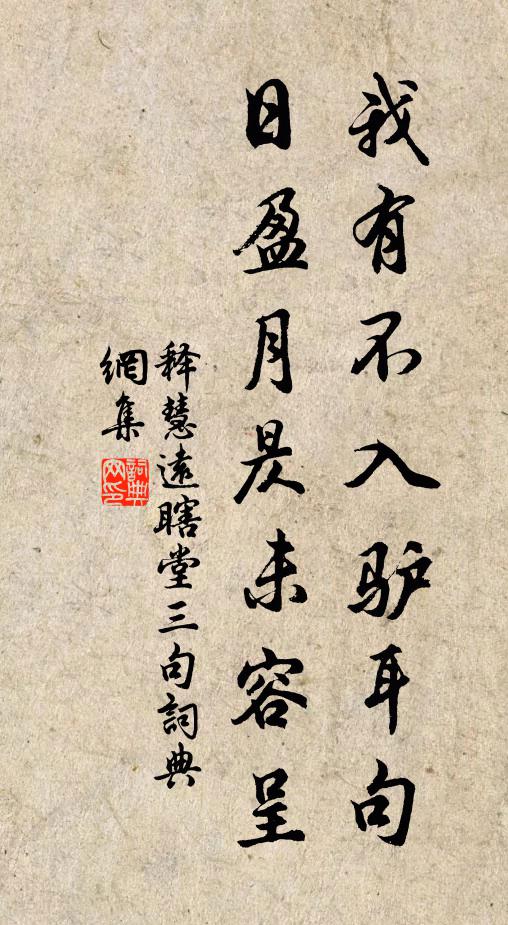 我有不入驴耳句
日盈月昃未容呈
释慧遠瞎堂三句詞典
網集
詞典
网印